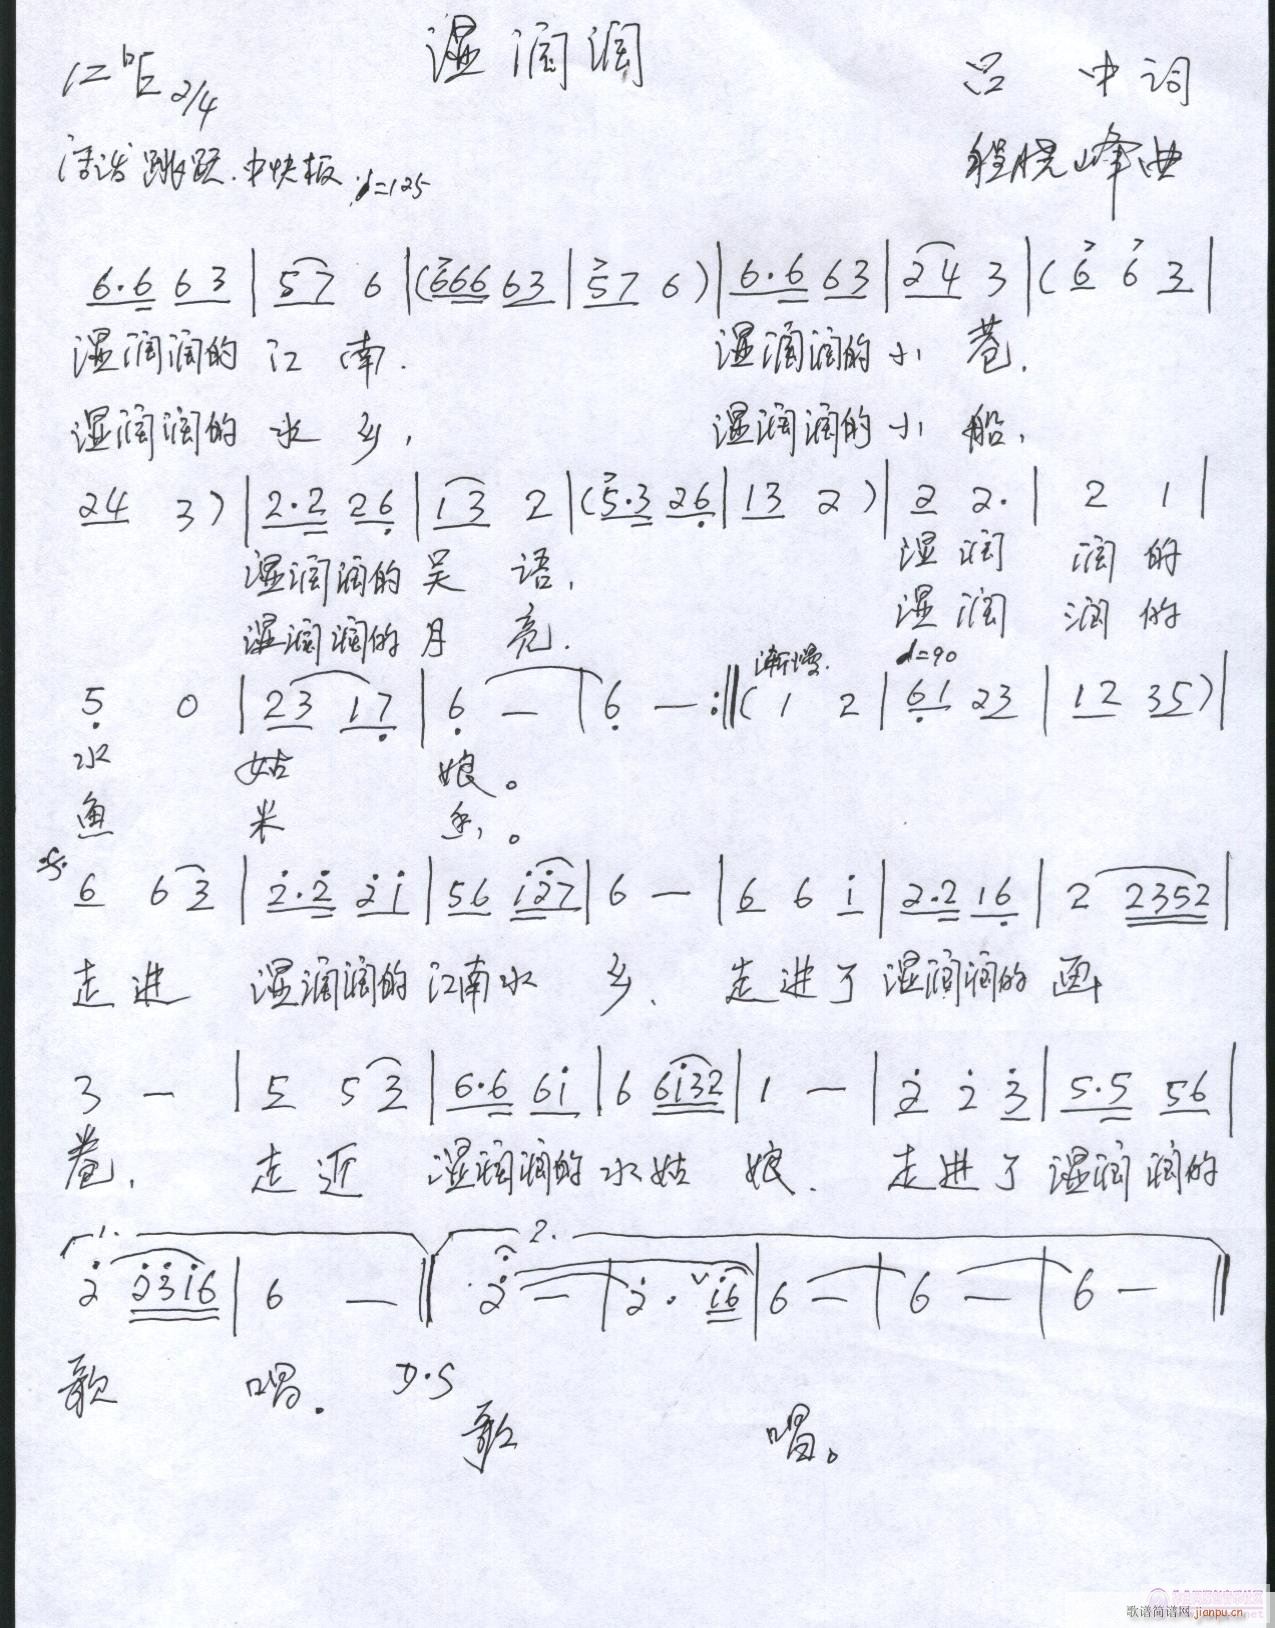 湿润润
1=♭E 2/4
吕 中词
活泼 跳跃.中快板.♩=125
程晓峰曲
6.6 63 | 57 6 |(666 63 | 57 6 )| 6.6 63 | 24 3 |( 6 6 3 |
湿润润的 江 南. 湿润润的 小 巷.
湿润润的 水 乡, 湿润润的 小 船,
24 3 )| 2.2 26 | 13 2 |(5.3 26 | 13 2 )| 2 2. | 2 1 |
湿润润的 吴 语, 湿 润 润 的
湿润润的 月 亮. 湿 润 润 的
渐慢. ♩=90
5 0 | 23 17 | 6 — | 6 — :‖( 1 2 | 61 23 | 12 35 )|
水 姑 娘。
鱼 米 乡。
6 6 3 | 2.2 21 | 56 127 | 6 — | 6 6 1 | 2.2 16 | 2 2352 |
走 进 湿润润的 江南水 乡. 走 进 了 湿润润的 画
3 — | 5 5 3 | 6.6 61 | 6 6132 | 1 — | 2 2 3 | 5.5 56 |
卷, 走 近 湿润润的 水姑 娘. 走 进 了 湿润润的
1. 2.
2 2316 | 6 — ‖ 2 — | 2. ∨16 | 6 — | 6 — | 6 — ‖
歌 唱. D.S
歌 唱。
歌谱简谱网 jianpu.cn